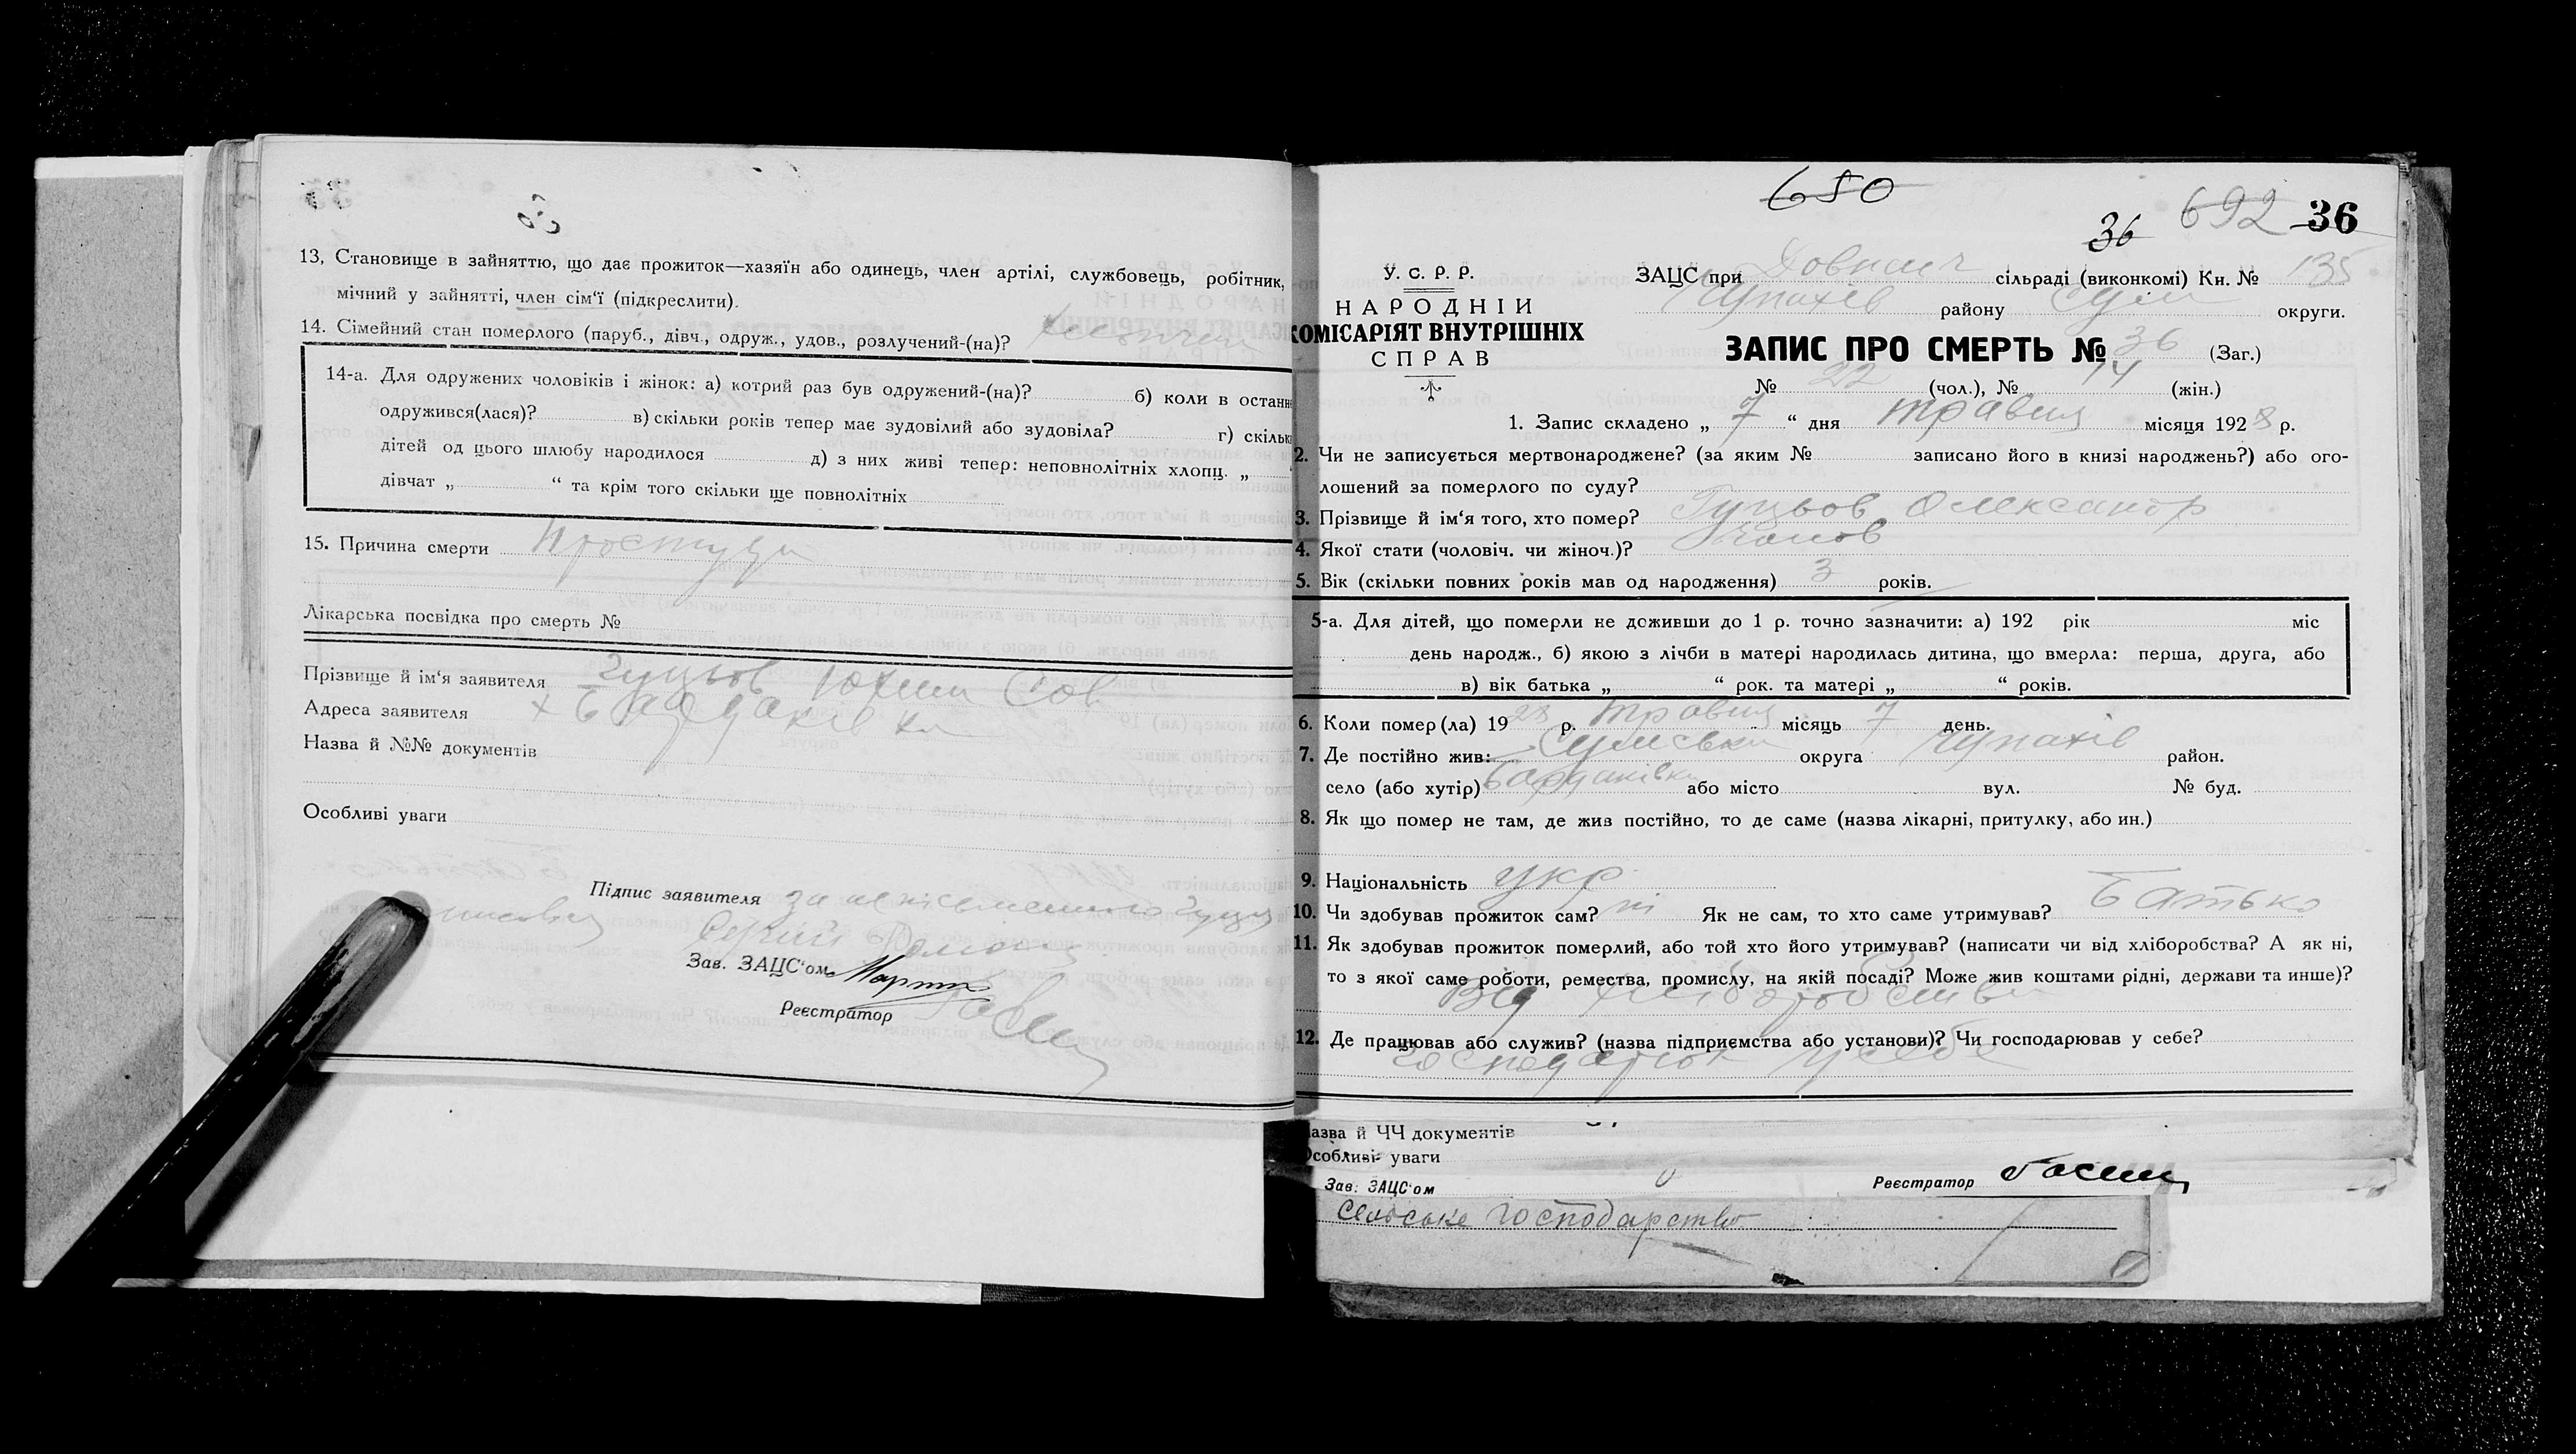 13, Становище в зайняттю, що дає прожиток—хазяїн або одинець, член артілі, службовець, робітник,
мічний у зайнятті, член сім'ї (підкреслити).
14. Сімейний стан померлого (паруб., дівч., одруж., удов., розлучений-(на)?
14-а. Для одружених чоловіків і жінок: а) котрий раз був одружений-(на)? б) коли в останн
одружився(лася)? в) скільки років тепер має зудовілий або зудовіла? г) скільк
дітей од цього шлюбу народилося д) з них живі тепер: неповнолітніх хлопц. „
дівчат „ “ та крім того скільки ще повнолітніх
15. Причина смерти Простуда
Лікарська посвідка про смерть №
Прізвище й ім'я заявителя Гуцьов Юхим
Адреса заявителя х Бардаківка
Назва й №№ документів
Особливі уваги
Підпис заявителя за неписьменного
Зав. ЗАЦС'ом
Реєстратор
680
36 692 36
У. С. Р. Р.
НАРОДНІЙ
КОМІСАРІЯТ ВНУТРІШНІХ
СПРАВ
ЗАЦС при сільраді (виконкомі) Кн. № 135
Чупахів району Сум округи.
ЗАПИС ПРО СМЕРТЬ № 36 (Заг.)
№ 22 (чол.), № 14 (жін.)
1. Запис складено „ 7 “ дня травня місяця 1928 р.
2. Чи не записується мертвонароджене? (за яким № записано його в книзі народжень?) або ого-
лошений за померлого по суду?
3. Прізвище й ім'я того, хто помер? Гуцьов Олександр
4. Якої стати (чоловіч. чи жіноч.)?
5. Вік (скільки повних років мав од народження) 3 років.
5-а. Для дітей, що померли не доживши до 1 р. точно зазначити: а) 192 рік міс
день народж., б) якою з лічби в матері народилась дитина, що вмерла: перша, друга, або
в) вік батька „ “ рок. та матері „ “ років.
6. Коли помер(ла) 1928 р. травня місяць 7 день.
7. Де постійно жив: Сумська округа Чупахів район.
село (або хутір) Бардаківка або місто вул. № буд.
8. Як що помер не там, де жив постійно, то де саме (назва лікарні, притулку, або ин.)
9. Національність укр
10. Чи здобував прожиток сам? ні Як не сам, то хто саме утримував? Батько
11. Як здобував прожиток померлий, або той хто його утримував? (написати чи від хліборобства? А як ні,
то з якої саме роботи, ремества, промислу, на якій посаді? Може жив коштами рідні, держави та инше)?
Від хліборобства
12. Де працював або служив? (назва підприємства або установи)? Чи господарював у себе?
господарює у себе
азва й ЧЧ документів
Особливі уваги
Зав. ЗАЦС'ом Реєстратор
Сельське господарство